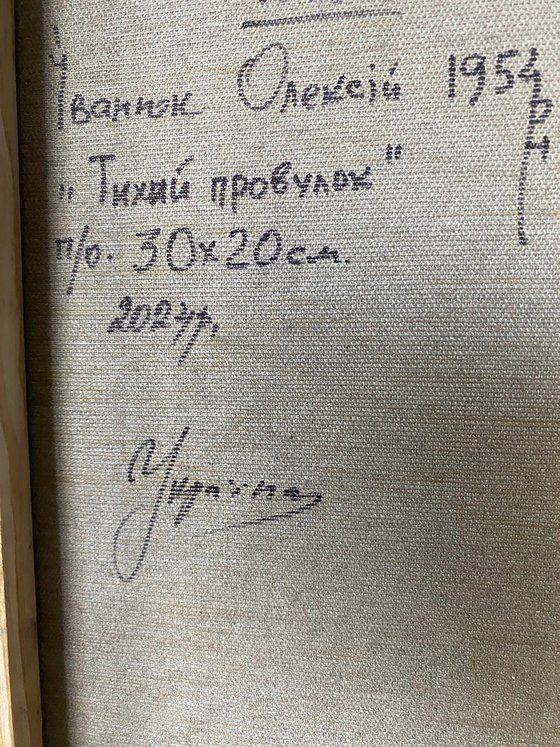 Іванюк Олексій 1954 р н
„Тихий провулок"
п/о. 30х20см.
2024р.
Україна